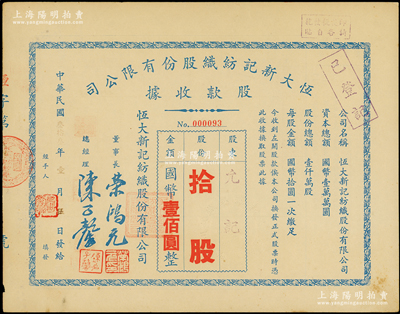 上海陽明拍賣
恆大新記紡織股份有限公司
股款收據
No. 000093
已登記
公司名稱 恆大新記紡織股份有限公司
資本總額 國幣壹萬萬圓
股份總額 壹仟萬股
每股金額 國幣拾圓一次繳足
今收到左開股款俟本公司換發正式股票時憑
此收據換取股票此據
股戶 允記
股份 拾股
金額 國幣壹佰圓整
恆大新記紡織股份有限公司
董事長 榮鴻元
總經理
經手人
中華民國 年 月 日發給
字第 號
上海陽明拍賣
www.ymauction.com